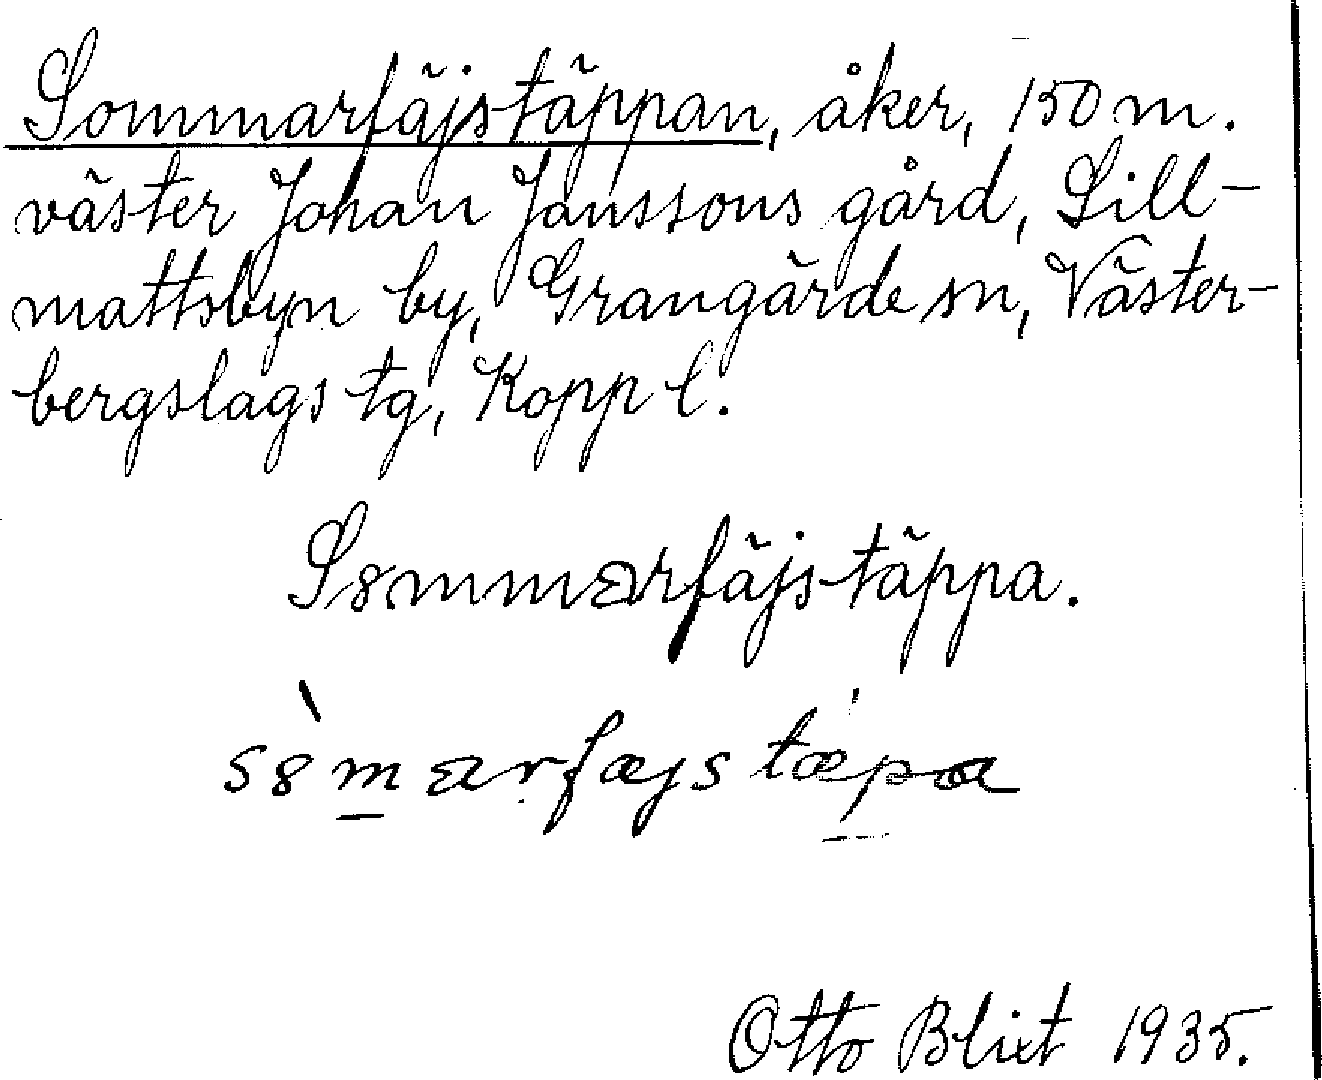 Sommarfäjstäppan, åker, 150 m.
väster Johan Janssons gård, Lill-
mattsbyn by, Grangärde sn, Väster-
bergslags tg, Kopp l.
S8mmarfäjstäppa.
s8̀marfæjstæpa
Otto Blixt 1935.